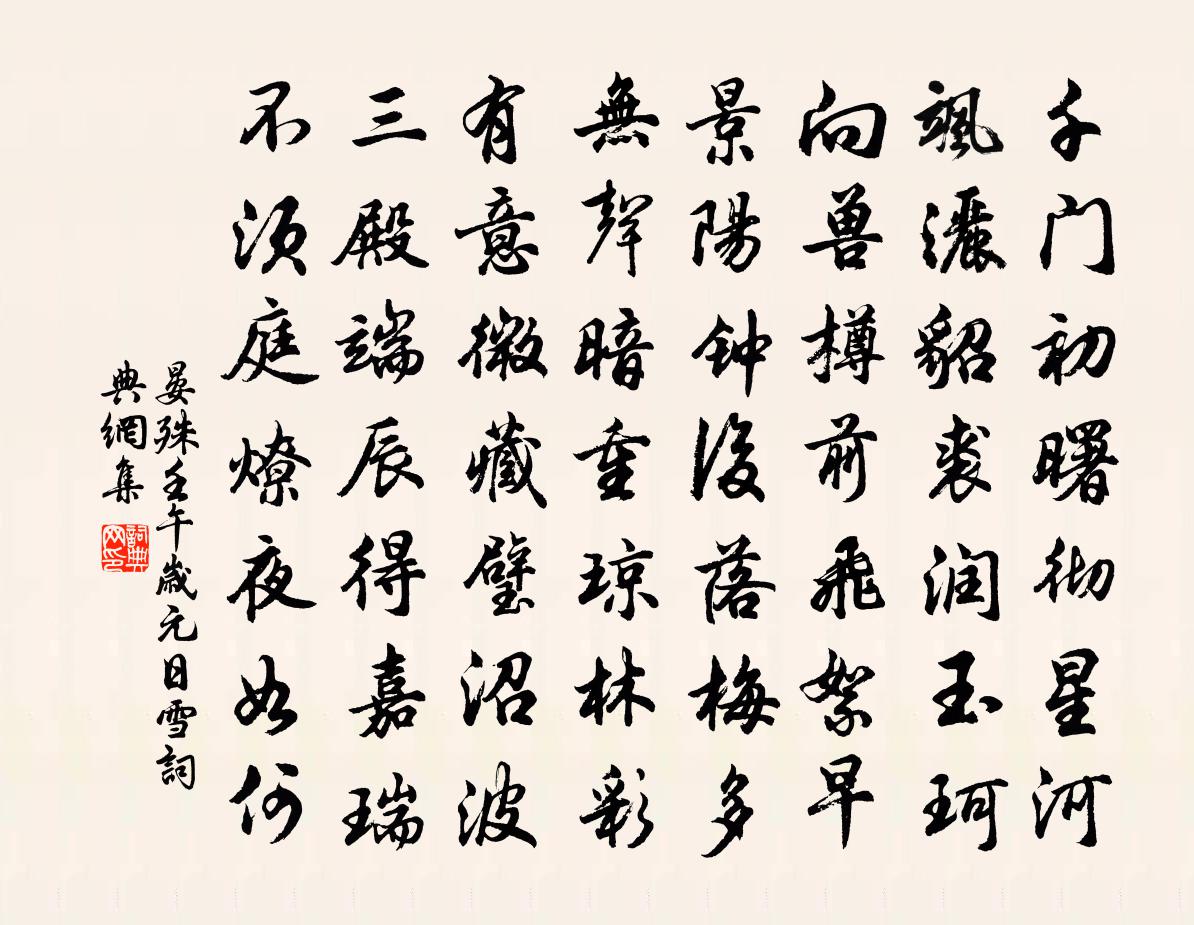 千门初曙彻星河
飒灑貂裘润玉珂
向兽樽前飛絮早
景陽钟後落梅多
無聲暗重琼林彩
有意微藏璧沼波
三殿端辰得嘉瑞
不须庭燎夜如何
晏殊壬午歲元日雪詞
典網集
詞典
网印